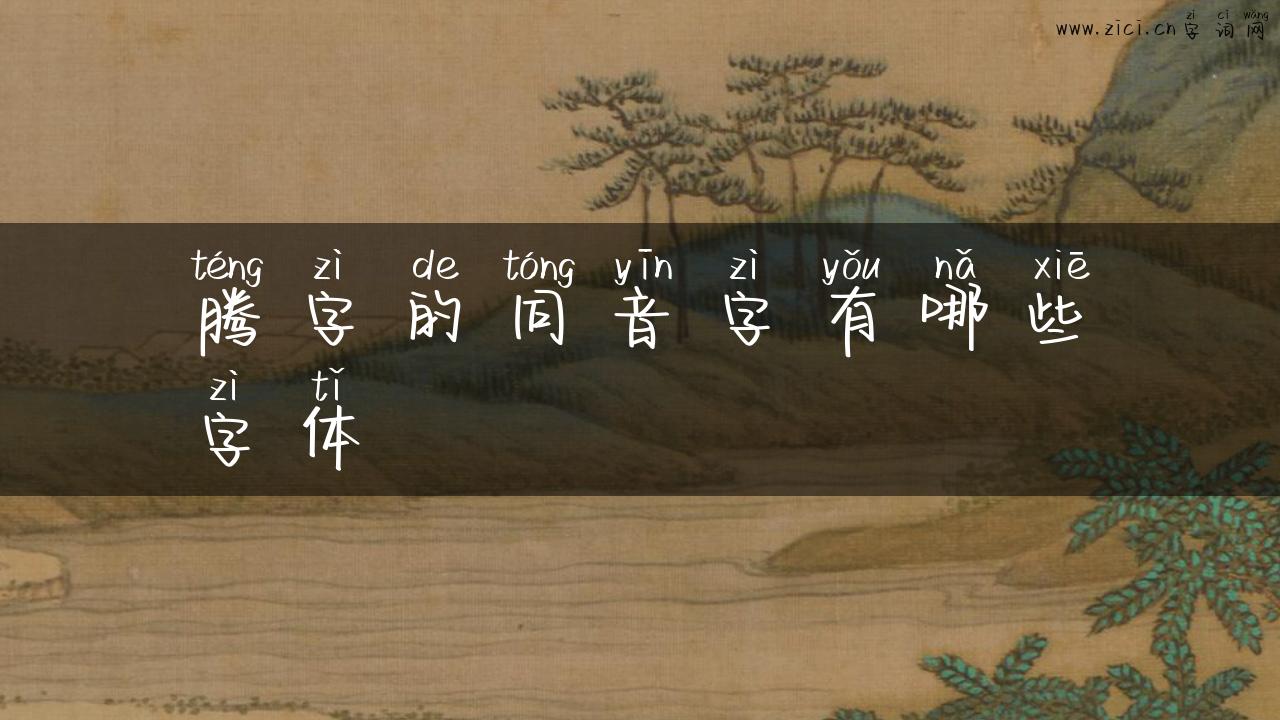 zì cí wǎng
www.zici.cn 字词网
téng zì de tóng yīn zì yǒu nǎ xiē
腾字的同音字有哪些
zì tǐ
字体